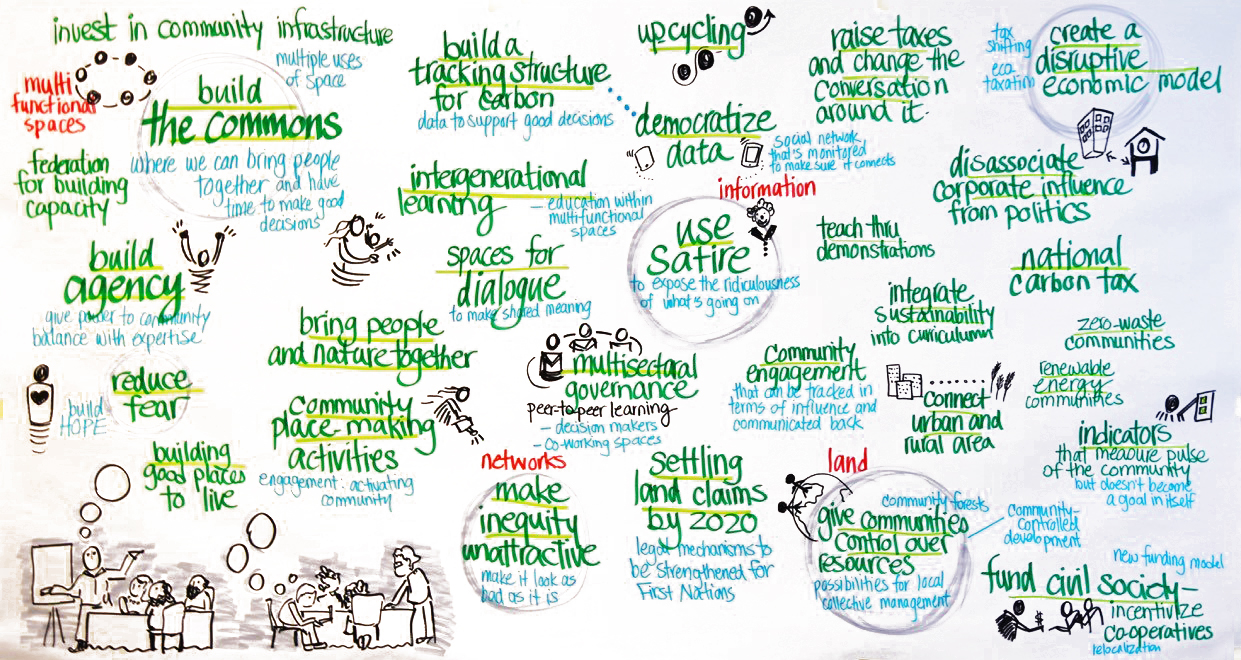 invest in community infrastructure
multiple uses
of space
multi
functional
spaces
build
the commons
where we can bring people
together and have
time to make good
decisions
federation
for building
capacity
build
agency
give power to community
balance with expertise
reduce
fear
build
HOPE
building
good places
to live
build a
tracking structure
for carbon
data to support good decisions
intergenerational
learning
- education within
multifunctional
spaces
spaces for
dialogue
to make shared meaning
bring people
and nature together
community
place-making
activities
engagement: activating
community
upcycling
democratize
data
social network
that's monitored
to make sure it connects
information
use
satire
to expose the ridiculousness
of what's going on
multisectoral
governance
peer-to-peer learning
- decision makers
- co-working spaces
networks
make
inequity
unattractive
make it look as
bad as it is
settling
land claims
by 2020
legal mechanisms to
be strengthened for
First Nations
raise taxes
and change the
conversation
around it.
teach thru
demonstrations
integrate
sustainability
into curriculum
community
engagement
that can be tracked in
terms of influence and
communicated back
connect
urban and
rural area
land
community forests
give communities
control over
resources
possibilities for local
collective management
community-
controlled
development
tax
shifting
eco
taxation
create a
disruptive
economic model
disassociate
corporate influence
from politics
national
carbon tax
zero-waste
communities
renewable
energy
communities
indicators
that measure pulse
of the community
but doesn't become
a goal in itself
new funding model
fund civil society -
incentivize
co-operatives
relocalization